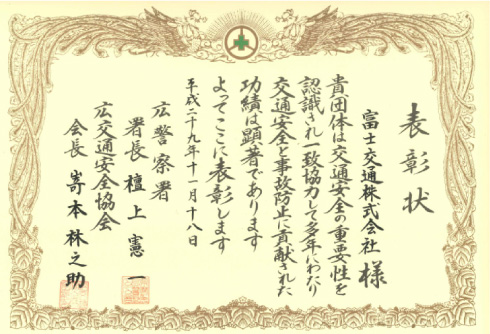 表彰状
富士交通株式会社 様
貴団体は交通安全の重要性を
認識され一致協力して多年にわたり
交通安全と事故防止に貢献された
功績は顕著であります
よってここに表彰します
平成二十九年十一月十八日
広警察署
署長 檀上憲一
広交通安全協会
会長 嵜本林之助